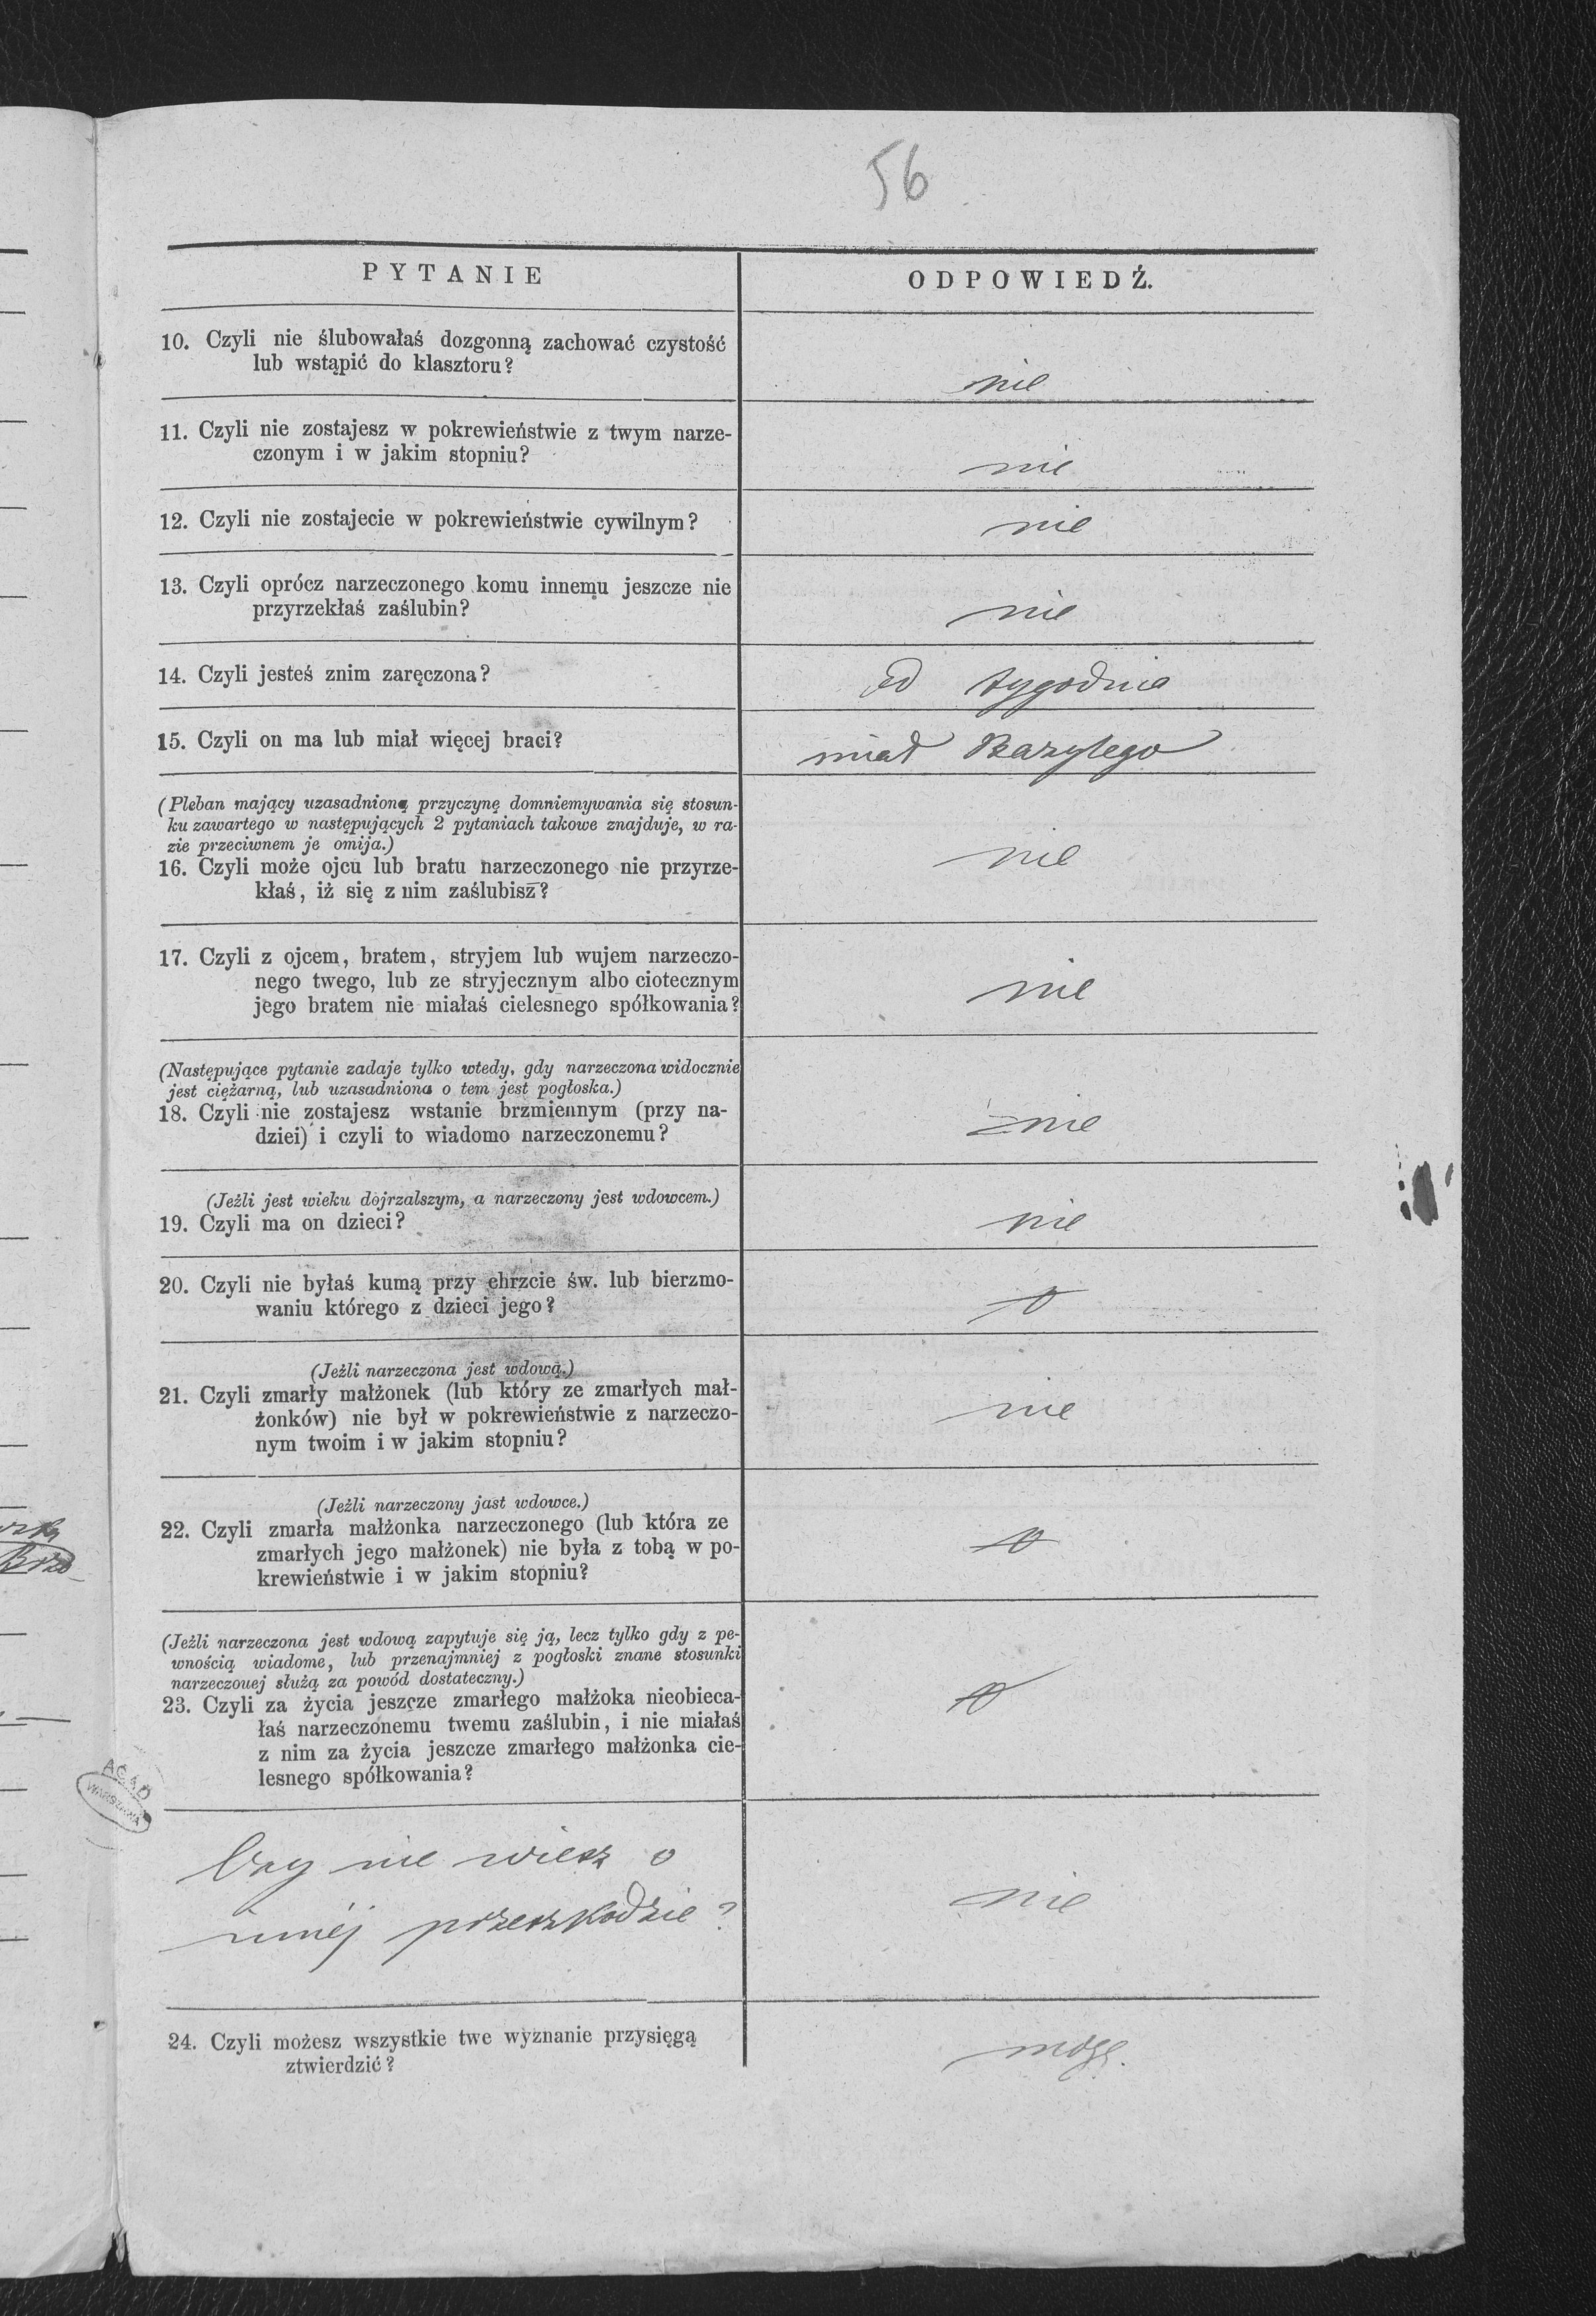 56
PYTANIE
ODPOWIEDŹ.
10. Czyli nie ślubowałaś dozgonną zachować czystość
lub wstąpić do klasztoru?
nie
11. Czyli nie zostajesz w pokrewieństwie z twym narze-
czonym i w jakim stopniu?
nie
12. Czyli nie zostajecie w pokrewieństwie cywilnym?
nie
13. Czyli oprócz narzeczonego komu innemu jeszcze nie
przyrzekłaś zaślubin?
nie
14. Czyli jesteś znim zaręczona?
od tygodnia
15. Czyli on ma lub miał więcej braci?
miał Bazylego
(Pleban mający uzasadnioną przyczynę domniemywania się stosun-
ku zawartego w następujących 2 pytaniach takowe znajduje, w ra-
zie przeciwnem je omija.)
16. Czyli może ojcu lub bratu narzeczonego nie przyrze-
kłaś, iż się z nim zaślubisz?
nie
17. Czyli z ojcem, bratem, stryjem lub wujem narzeczo-
nego twego, lub ze stryjecznym albo ciotecznym
jego bratem nie miałaś cielesnego spółkowania?
nie
(Następujące pytanie zadaje tylko wtedy, gdy narzeczona widocznie
jest ciężarną, lub uzasadniona o tem jest pogłoska.)
18. Czyli nie zostajesz wstanie brzmiennym (przy na-
dziei) i czyli to wiadomo narzeczonemu?
nie
(Jeźli jest wieku dojrzalszym, a narzeczony jest wdowcem.)
19. Czyli ma on dzieci?
nie
20. Czyli nie byłaś kumą przy chrzcie św. lub bierzmo-
waniu którego z dzieci jego?
0
(Jeźli narzeczona jest wdową.)
21. Czyli zmarły małżonek (lub który ze zmarłych mał-
żonków) nie był w pokrewieństwie z narzeczo-
nym twoim i w jakim stopniu?
nie
(Jeźli narzeczony jast wdowce.)
22. Czyli zmarła małżonka narzeczonego (lub która ze
zmarłych jego małżonek) nie była z tobą w po-
krewieństwie i w jakim stopniu?
0
(Jeźli narzeczona jest wdową zapytuje się ją, lecz tylko gdy z pe-
wnością wiadome, lub przenajmniej z pogłoski znane stosunki
narzeczouej służą za powód dostateczny.)
23. Czyli za życia jeszcze zmarłego małżoka nieobieca-
łaś narzeczonemu twemu zaślubin, i nie miałaś
z nim za życia jeszcze zmarłego małżonka cie-
lesnego spółkowania?
0
AGAD
WARSZAWA
Czy nie wiesz o
innéj przeszkodzie?
nie
24. Czyli możesz wszystkie twe wyznanie przysięgą
ztwierdzić?
mogę.